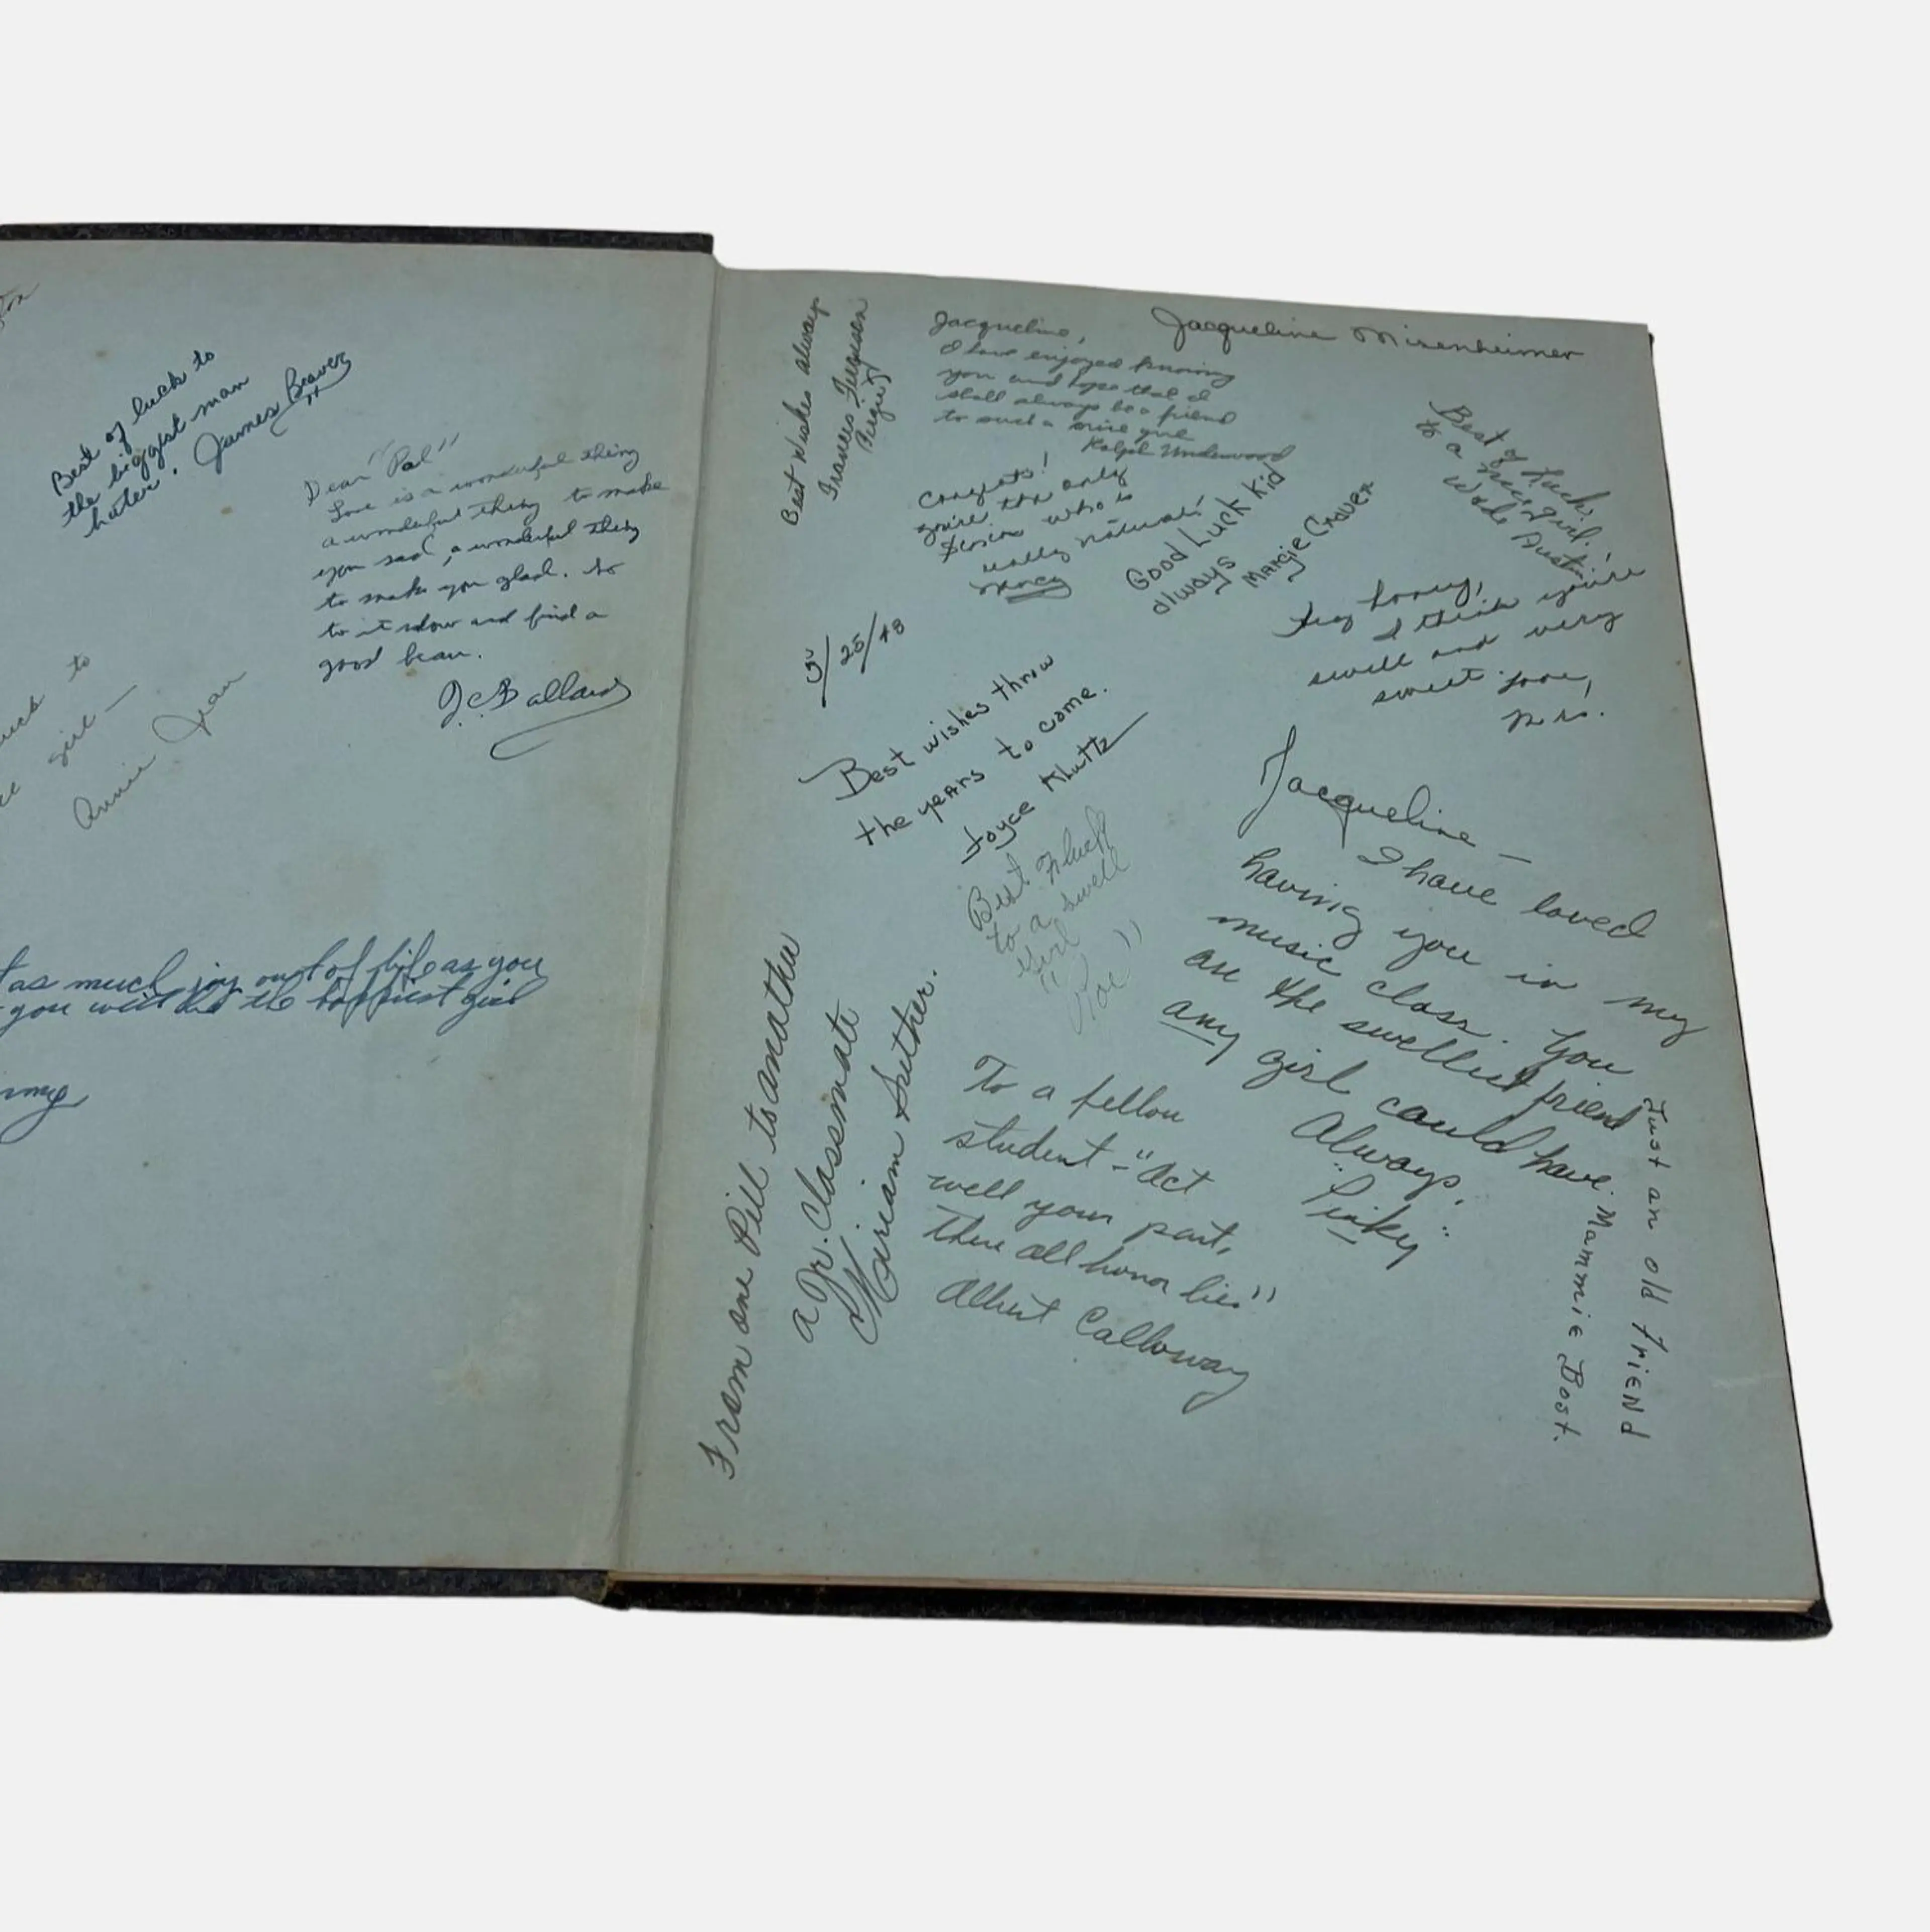 Best of luck to
the biggest man
hater. James Beaver
Dear "Pal"
Love is a wonderful thing
a wonderful thing to make
you sad, a wonderful thing
to make you glad. So
to it now and find a
good beau.
J.C. Ballard
to
girl —
Annie Jean
as much joy out of life as you
you will be the happiest girl
Best wishes always
Frances Ferguson
Jacqueline Misenheimer
Jacqueline,
I have enjoyed knowing
you and hope that I
shall always be a friend
to such a nice girl
Ralph Underwood
Congrats!
you're the only
who's
really natural!
Nancy
Good Luck Kid
always
Margie Craver
Best of Luck
to a nice girl.
Wade Austin
Hey honey,
I think you're
swell and very
sweet. Love,
5/25/48
Best wishes thruw
the years to come.
Joyce Kluttz
Best of luck
to a swell
girl
Jacqueline —
I have loved
having you in my
music class. You
are the swellest friend
any girl could have.
Always,
"Pinky"
From one Pill to another
a Jr. Classmate
Mariam Suther.
To a fellow
student – "Act
well your part,
there all honor lies"
Albert Calloway
Just an old friend
Mammie Bost.